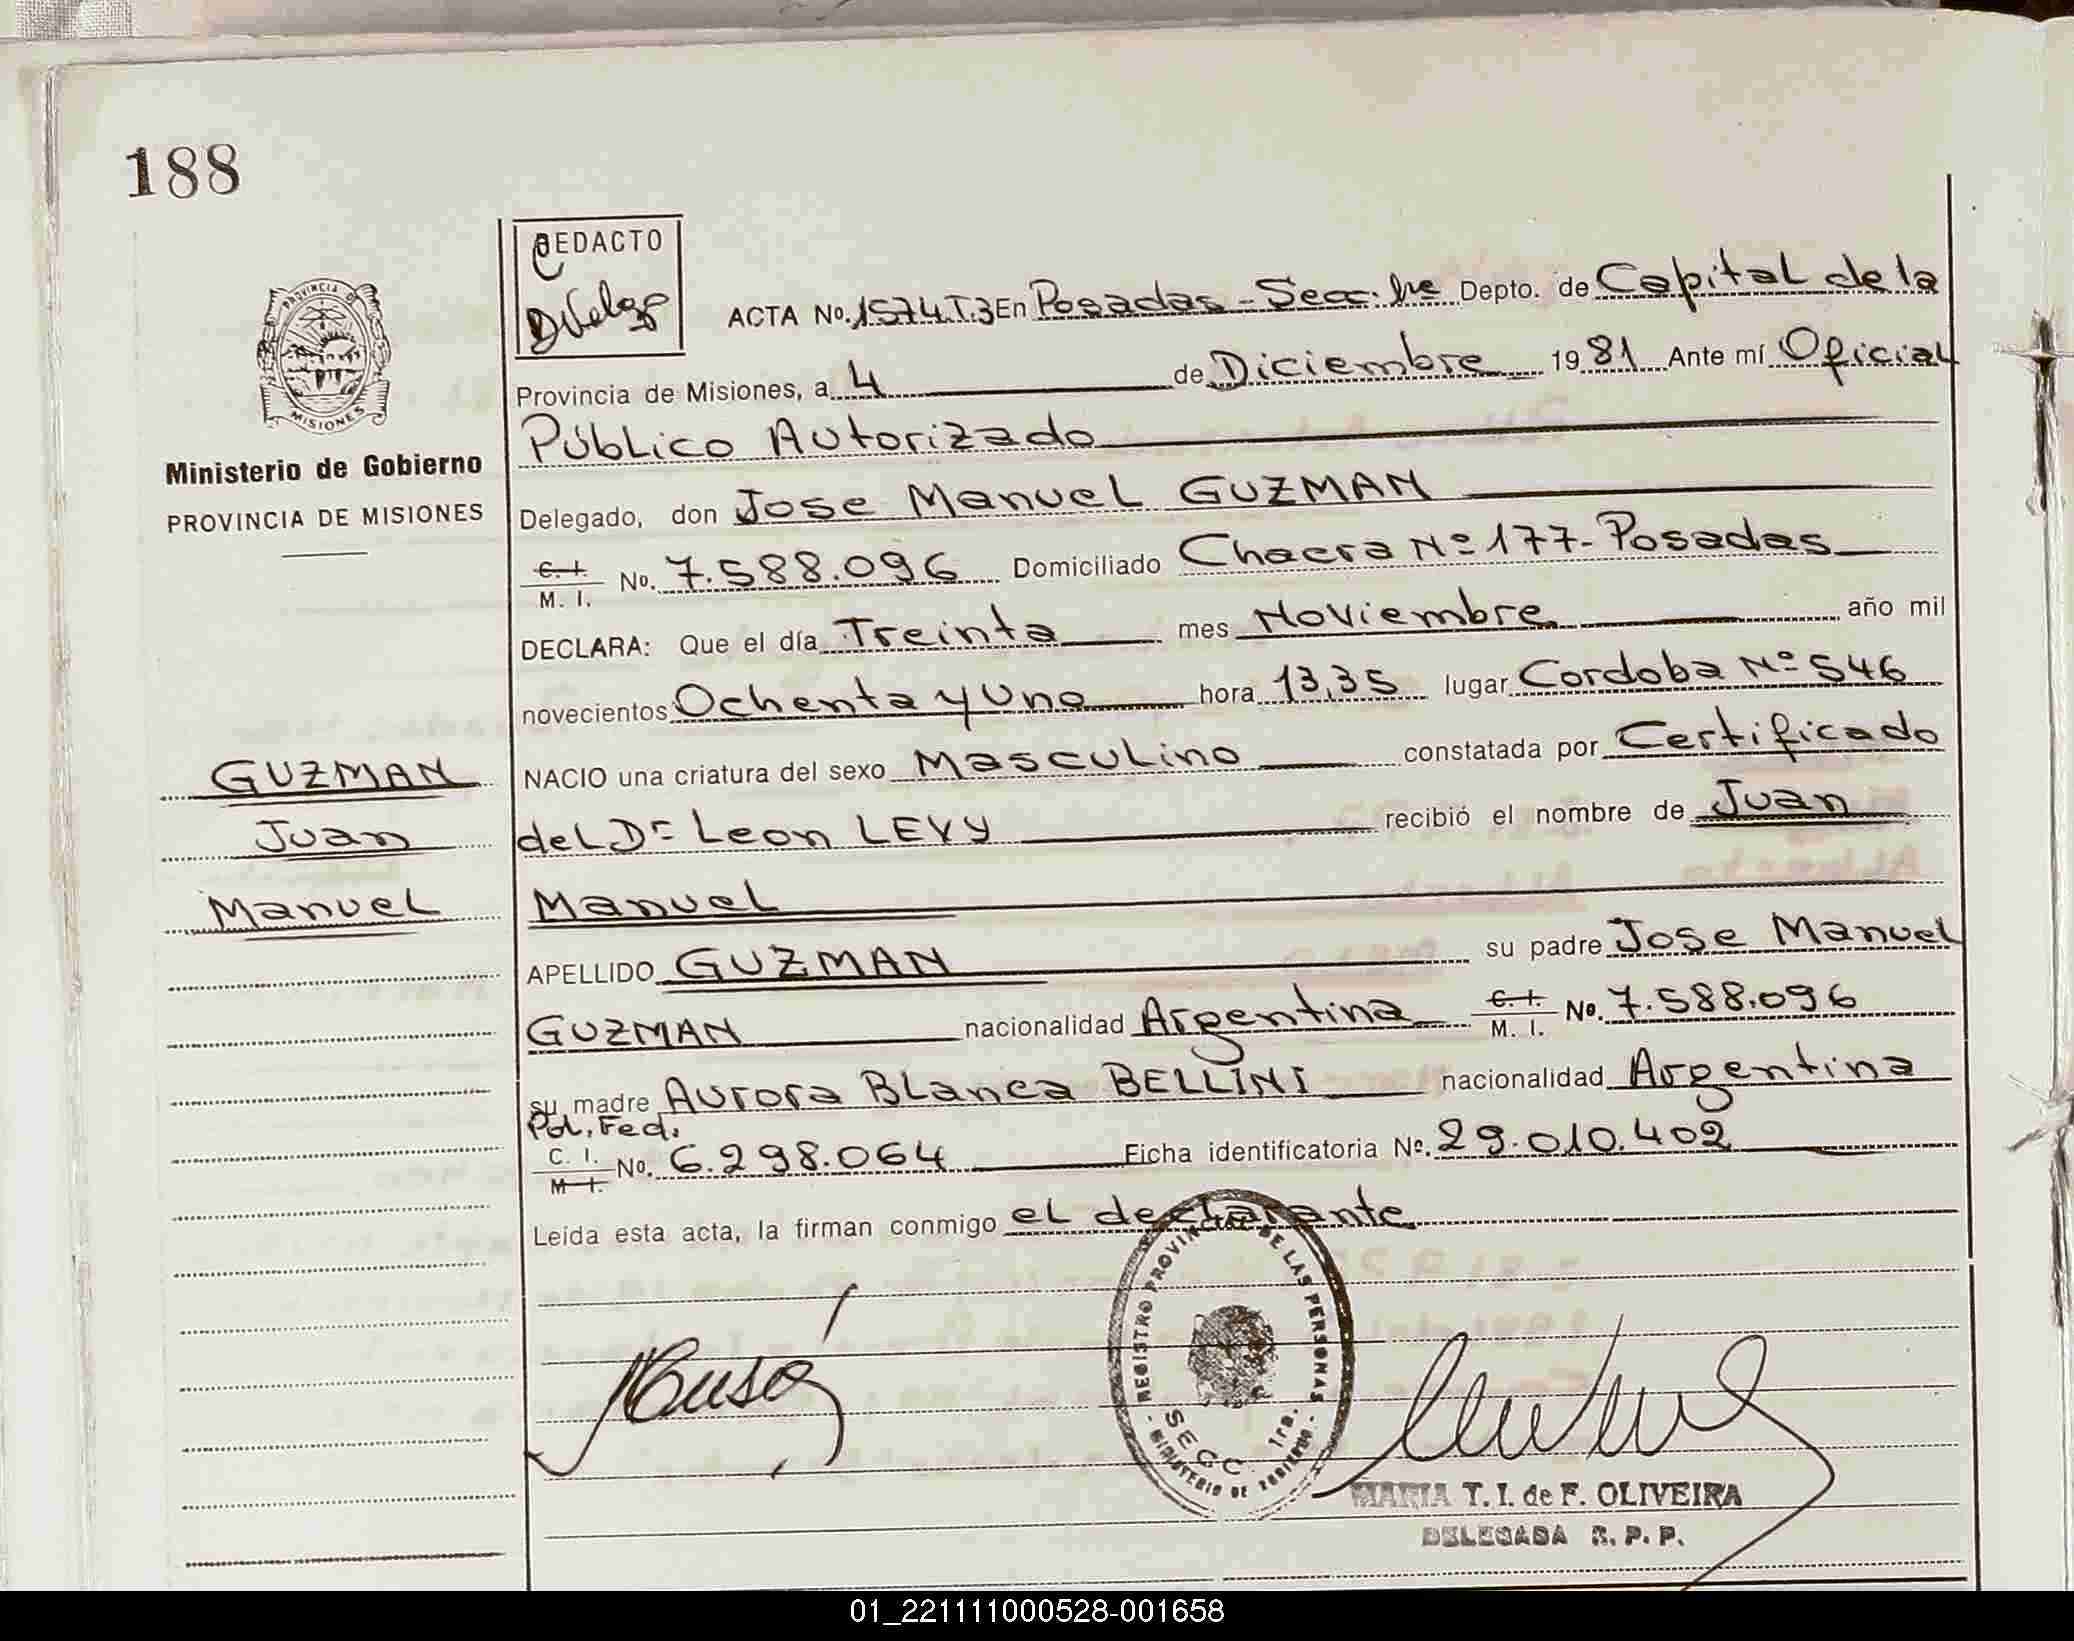 188
REDACTO
PROVINCIA DE
MISIONES
ACTA No. 1574 T.3 En Posadas - Secc. 1ra Depto. de Capital de la
Provincia de Misiones, a 4 de Diciembre 1981 Ante mí Oficial
Público Autorizado
Ministerio de Gobierno
PROVINCIA DE MISIONES
Delegado, don Jose Manuel GUZMAN
C. I. M. I. No. 7.588.096 Domiciliado Chacra Nº 177 - Posadas
DECLARA: Que el día Treinta mes Noviembre año mil
novecientos Ochenta y Uno hora 13,35 lugar Cordoba Nº 546
GUZMAN
Juan
Manuel
NACIO una criatura del sexo Masculino constatada por Certificado
del Dr Leon LEVY recibió el nombre de Juan
Manuel
APELLIDO GUZMAN su padre Jose Manuel
GUZMAN nacionalidad Argentina C. I. M. I. No. 7.588.096
su madre Aurora Blanca BELLINI nacionalidad Argentina
Pol. Fed.
C. I. M. I. No. 6.298.064 Ficha identificatoria No. 29.010.402
Leída esta acta, la firman conmigo el declarante
REGISTRO PROVINCIAL DE LAS PERSONAS
SECC. 1ra.
MINISTERIO DE GOBIERNO
MARIA T. I. de F. OLIVEIRA
DELEGADA R. P. P.
01_221111000528-001658